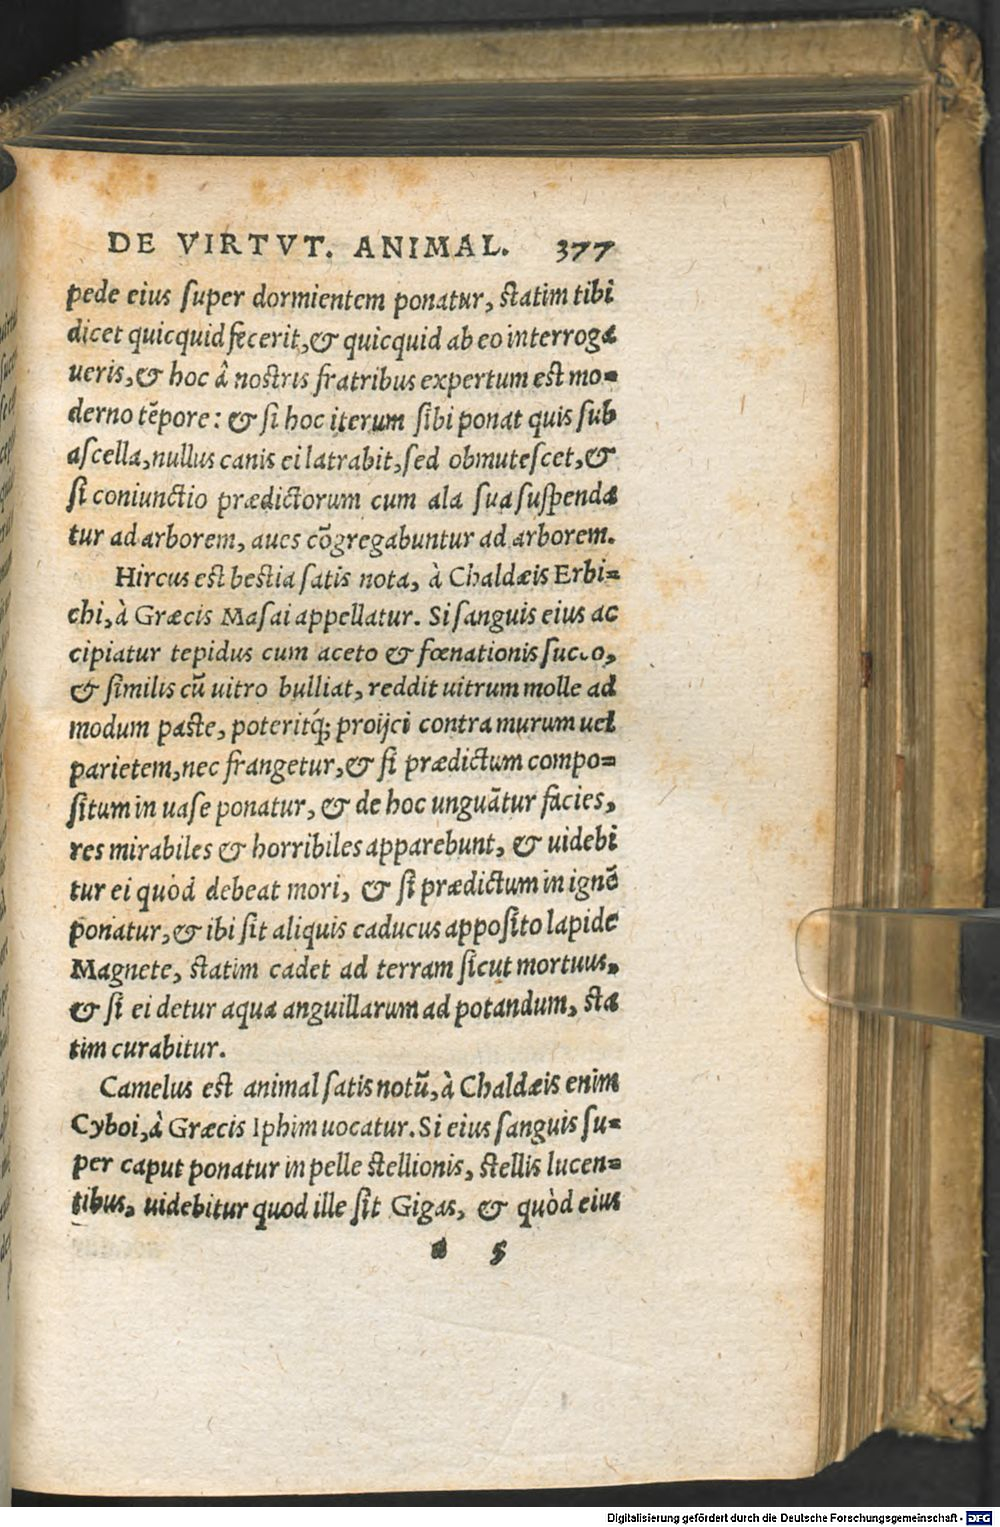 DE VIRTVT. ANIMAL. 377
pede eius ſuper dormientem ponatur, ſtatim tibi
dicet quicquid fecerit, & quicquid ab eo interroga
ueris, & hoc â noſtris fratribus expertum eſt mo=
derno tẽpore: & ſi hoc iterum ſibi ponat quis ſub
aſcella, nullus canis ei latrabit, ſed obmuteſcet, &
ſi coniunctio prædictorum cum ala ſua ſuſpenda
tur ad arborem, aues cõgregabuntur ad arborem.
Hircus eſt beſtia ſatis nota, à Chaldæis Erbi=
chi, à Græcis Maſai appellatur. Si ſanguis eius ac
cipiatur tepidus cum aceto & fœnationis ſucco,
& ſimilis cũ uitro bulliat, reddit uitrum molle ad
modum paſte, poteritq́; proijci contra murum uel
parietem, nec frangetur, & ſi prædictum compo=
ſitum in uaſe ponatur, & de hoc unguãtur facies,
res mirabiles & horribiles apparebunt, & uidebi
tur ei quòd debeat mori, & ſi prædictum in ignẽ
ponatur, & ibi ſit aliquis caducus appoſito lapide
Magnete, ſtatim cadet ad terram ſicut mortuus,
& ſi ei detur aqua anguillarum ad potandum, ſta
tim curabitur.
Camelus eſt animal ſatis notũ, à Chaldæis enim
Cyboi, à Græcis Iphim uocatur. Si eius ſanguis ſu=
per caput ponatur in pelle ſtellionis, ſtellis lucen=
tibus, uidebitur quod ille ſit Gigas, & quòd eius
a 5
Digitalisierung gefördert durch die Deutsche Forschungsgemeinschaft - DFG